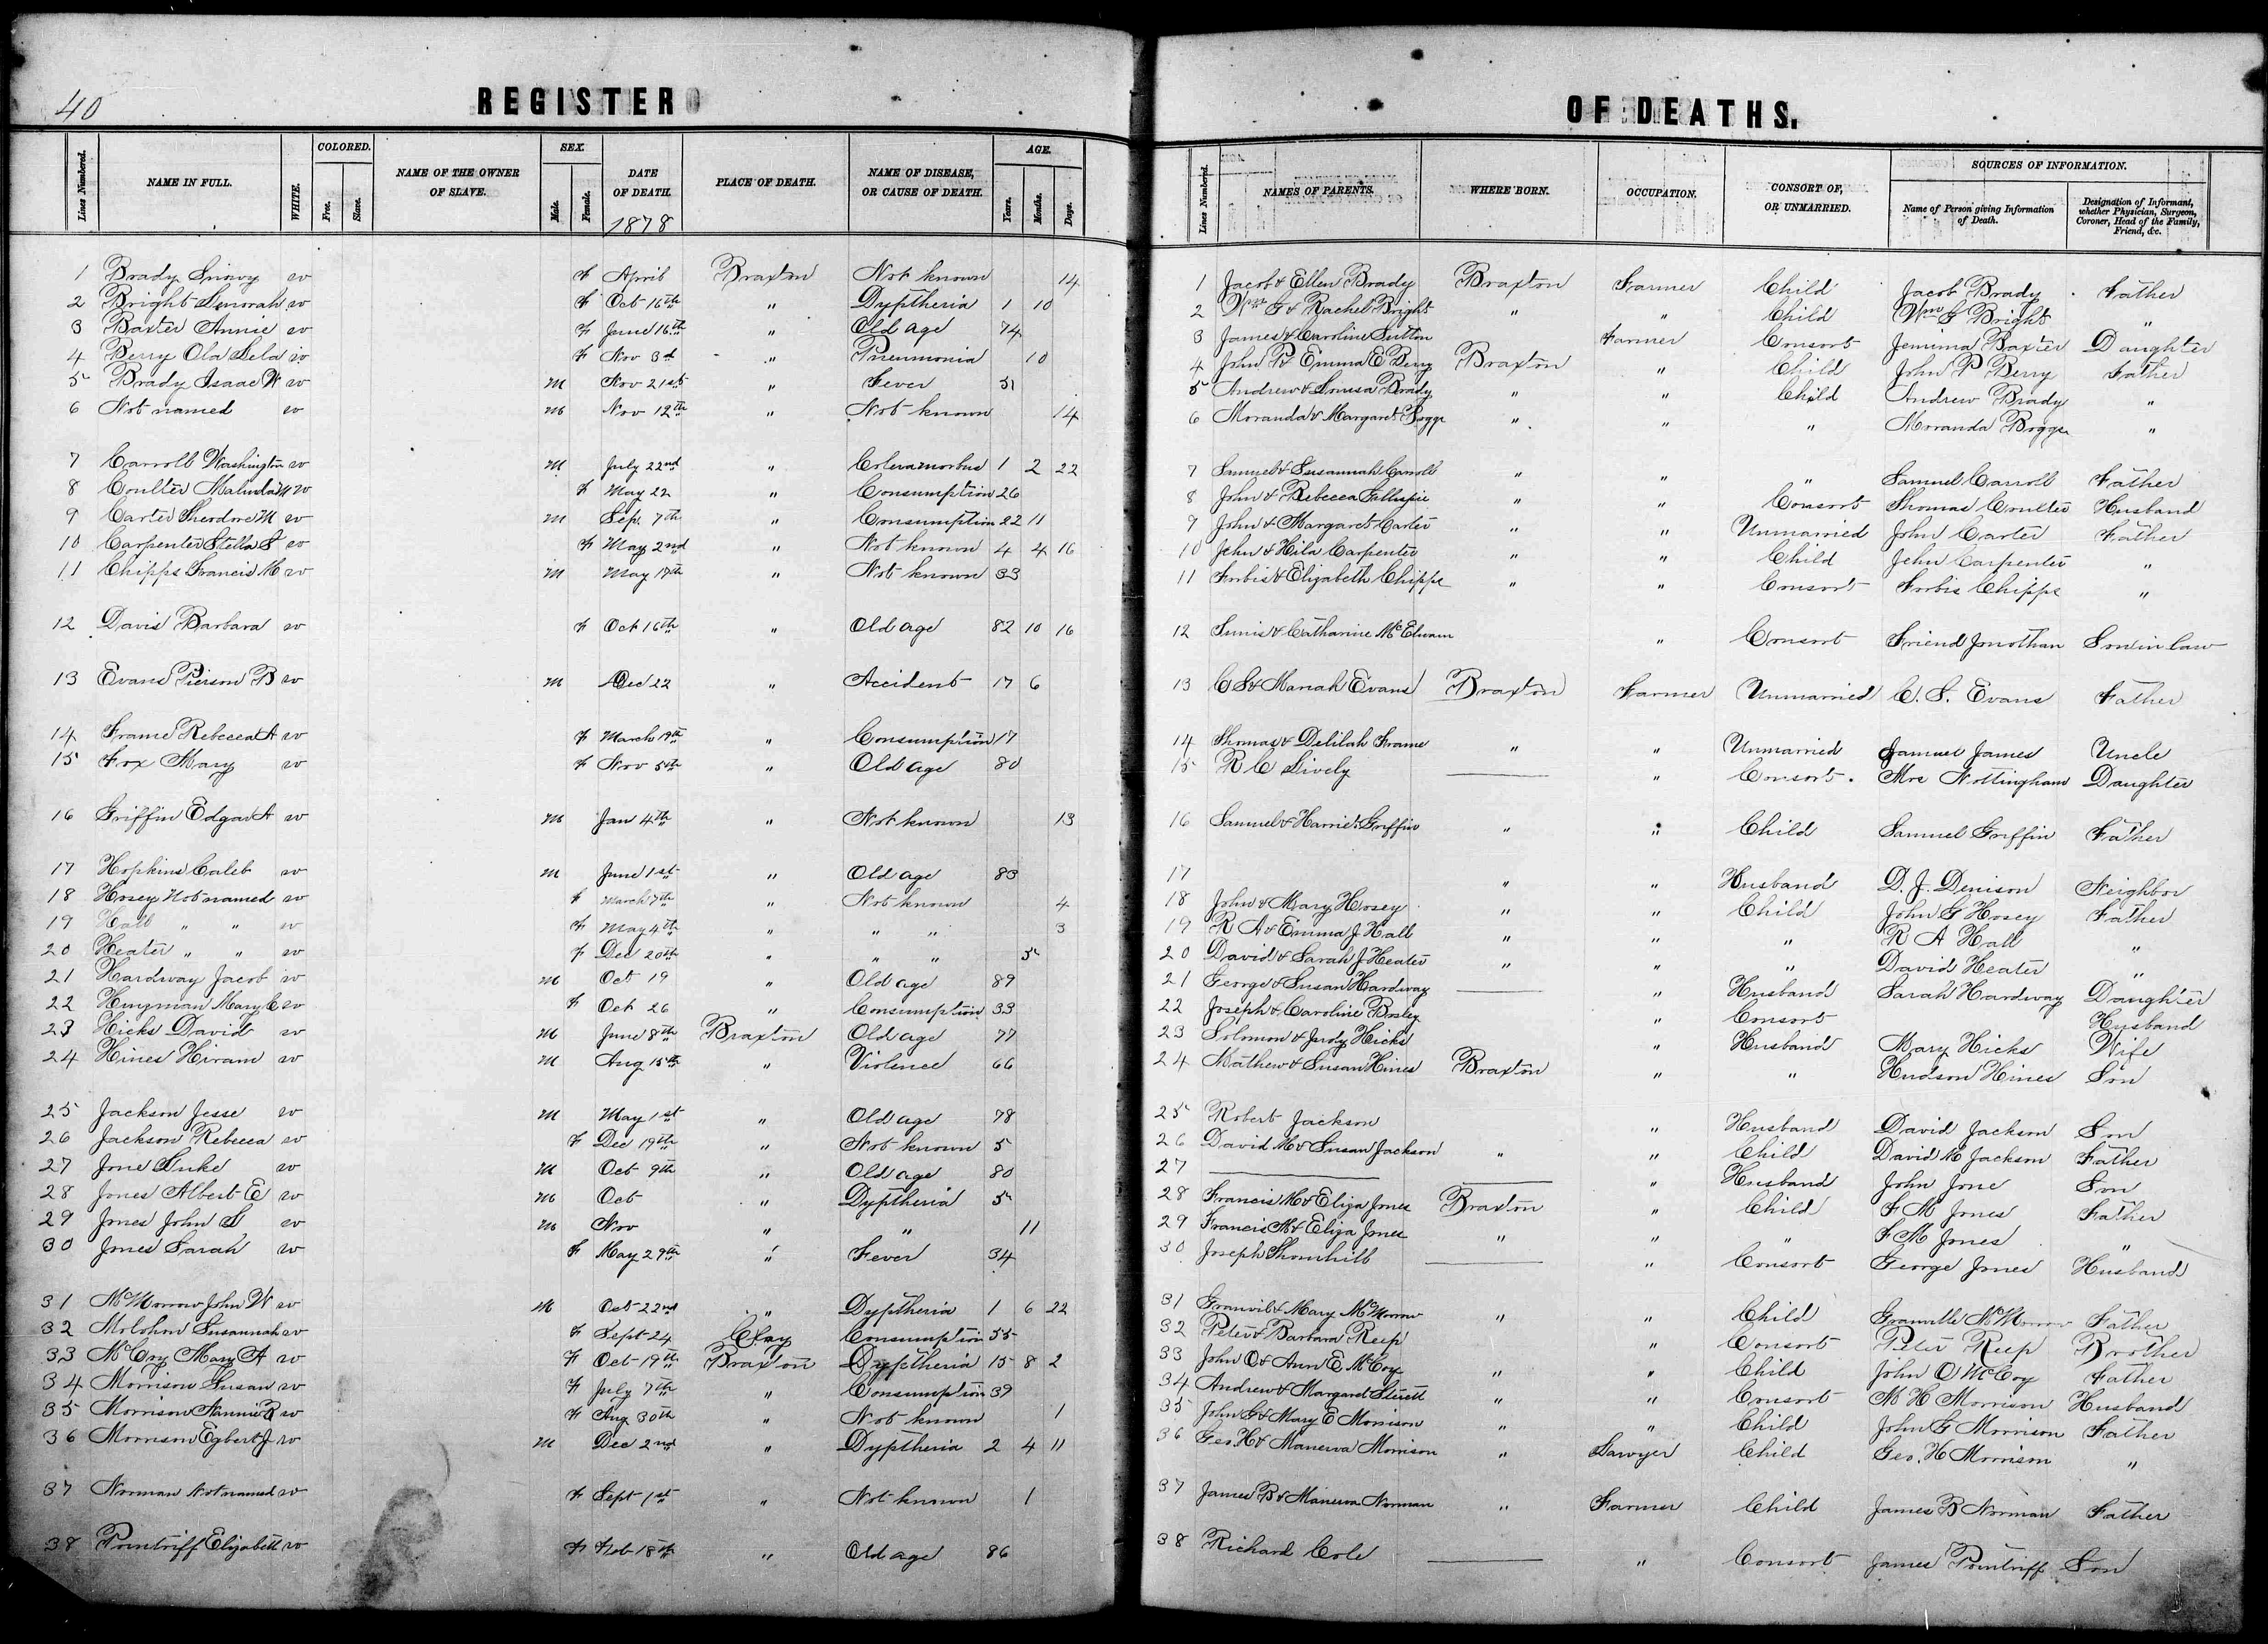 40
REGISTER OF DEATHS.
Lines Numbered. NAME IN FULL. WHITE. COLORED. Free. Slave. NAME OF THE OWNER OF SLAVE. SEX. Male. Female. DATE OF DEATH. 1878 PLACE OF DEATH. NAME OF DISEASE, OR CAUSE OF DEATH. AGE. Years. Months. Days.
1 Brady w F April Braxton Not known 14
2 Bright Lenorah w F Oct 16th " Dyptheria 1 10
3 Baxter Annie w F June 16th " Old age 74
4 Berry Ola Lela w F Nov 3d " Pneumonia 10
5 Brady Isaac W w M Nov 21st " Fever
6 Not named w M Nov 12th " Not known 14
7 Carroll Washington w M July 22nd " Coleramorbus 1 2 22
8 Coulter Malinda M w F May 22 " Consumption 26
9 Carter Theodore M w M Sep. 7th " Consumption 22 11
10 Carpenter Stella S w F May 2nd " Not known 4 4 16
11 Chipps Francis M w M May 17th " Not known 33
12 Davis Barbara w F Oct 16th " Old age 82 10 16
13 Evans Pierson B w M Dec 22 " Accident 17 6
14 Frame Rebecca A w F March 19th " Consumption 17
15 Fox Mary w F Nov 5th " Old age 80
16 Griffin Edgar A w M Jan 4th " Not known 13
17 Hopkins Caleb w M June 1st " Old age 83
18 Hosey Not named w F March 7th " Not known 4
19 Hall " " w F May 4th " " " 3
20 Heater " " w F Dec 20th " " " 5
21 Hardway Jacob w M Oct 19 " Old age 89
22 Hingman Mary C w F Oct 26 " Consumption 33
23 Hicks David w M June 8th Braxton Old age 77
24 Hines Hiram w M Aug 15th " Violence 66
25 Jackson Jesse w M May 1st " Old age 78
26 Jackson Rebecca w F Dec 19th " Not known 5
27 Jone Luke w M Oct 9th " Old age 80
28 Jones Albert E w M Oct " Dyptheria 5
29 Jones John S w M Nov " " 11
30 Jones Sarah w F May 29th " Fever 34
31 McMorrow John W w M Oct 22nd " Dyptheria 1 6 22
32 Molohon Susannah w F Sept 24 Clay Consumption 55
33 McCoy Mary A w F Oct 19th Braxton Dyptheria 15 8 2
34 Morrison Susan w F July 7th " Consumption 39
35 Morrison Nannie R w F Aug 30th " Not known 1
36 Morrison Egbert J w M Dec 2nd " Dyptheria 2 4 11
37 Norman Not named w F Sept 1st " Not known 1
38 Pointriff Elizabeth w F Feb 18th " Old age 86
Lines Numbered. NAMES OF PARENTS. WHERE BORN. OCCUPATION. CONSORT OF, OR UNMARRIED. SOURCES OF INFORMATION. Name of Person giving Information of Death. Designation of Informant, whether Physician, Surgeon, Coroner, Head of the Family, Friend, &c.
1 Jacob & Ellen Brady Braxton Farmer Child Jacob Brady Father
2 Wm G & Rachel Bright " " Child Wm G Bright "
3 James & Caroline Sutton Farmer Consort Jemima Baxter Daughter
4 John P & Emma E Berry Braxton " Child John P Berry Father
5 Andrew & Louisa Brady " " Child Andrew Brady "
6 Moranda & Margaret Boggs " " " Moranda Boggs "
7 Samuel & Susannah Carroll " " " Samuel Carroll Father
8 John & Rebecca Gillispie " " Consort Thomas Coulter Husband
9 John & Margaret Carter " " Unmarried John Carter Father
10 John & Hila Carpenter " " Child John Carpenter "
11 Forbis & Elizabeth Chipps " " Consort Forbis Chipps "
12 & Catharine McElwain " Consort Friend Jonothan Son in law
13 C S & Mariah Evans Braxton Farmer Unmarried C. S. Evans Father
14 Thomas & Delilah Frame " " Unmarried Samuel James Uncle
15 R C Lively " Consort Mrs Nottingham Daughter
16 Samuel & Harriet Griffin " " Child Samuel Griffin Father
17 " " Husband D. J. Denison Neighbor
18 John & Mary Hosey " " Child John G Hosey Father
19 R A & Emma J Hall " " " R A Hall "
20 David & Sarah J Heater " " " David Heater "
21 George & Susan Hardway " Husband Sarah Hardway Daughter
22 Joseph & Caroline Bosley " Consort Husband
23 Solomon & Judy Hicks " Husband Mary Hicks Wife
24 Mathew & Susan Hines Braxton " " Hudson Hines Son
25 Robert Jackson " Husband David Jackson Son
26 David M & Susan Jackson " " Child David M Jackson Father
27 " Husband John Jone Son
28 Francis M & Eliza Jones Braxton " Child F M Jones Father
29 Francis M & Eliza Jones " " " F M Jones "
30 Joseph Thornhill " Consort George Jones Husband
31 Granvil & Mary McMorrow " " Child Granville McMorrow Father
32 Peter & Barbara Reep " Consort Peter Reep Brother
33 John O & Ann E. McCoy " " Child John O McCoy Father
34 Andrew & Margaret Sterett " " Consort M H Morrison Husband
35 John G & Mary E Morrison " " Child John G Morrison Father
36 Geo. H & Manerva Morrison " Lawyer Child Geo. H Morrison "
37 James B & Manerva Norman " Farmer Child James B Norman Father
38 Richard Cole " Consort James Pointriff Son